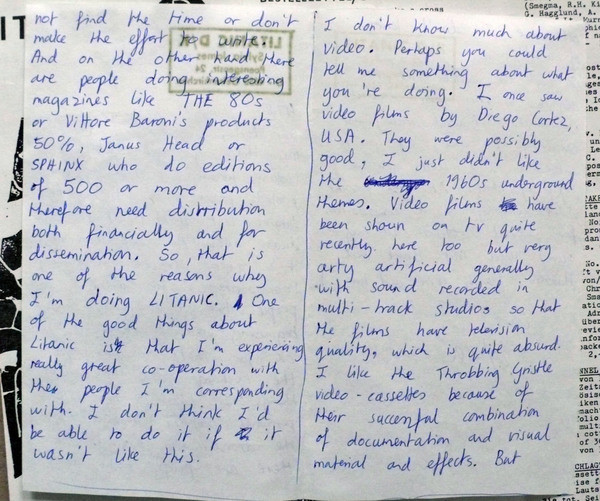 not find the time or don't
make the effort to write.
And on the other hand there
are people doing interesting
magazines like THE 80s
or Vittore Baroni's products
50%, Janus Head or
SPHINX who do editions
of 500 or more and
therefore need distribution
both financially and for
dissemination. So, that is
one of the reasons why
I'm doing LITANIC. One
of the good things about
Litanic is that I'm experiencing
really great co-operation with
the people I'm corresponding
with. I don't think I'd
be able to do it if it
wasn't like this.
I don't know much about
video. Perhaps you could
tell me something about what
you're doing. I once saw
video films by Diego Cortez,
USA. They were possibly
good, I just didn't like
the 1960s underground
themes. Video films have
been shown on tv quite
recently here too but very
arty artificial generally
with sound recorded in
multi-track studios so that
the films have television
quality, which is quite absurd.
I like the Throbbing Gristle
video-cassettes because of
their successful combination
of documentation and visual
material and effects. But
(Smegma, R.H. Ki
G. Hagglund, A.